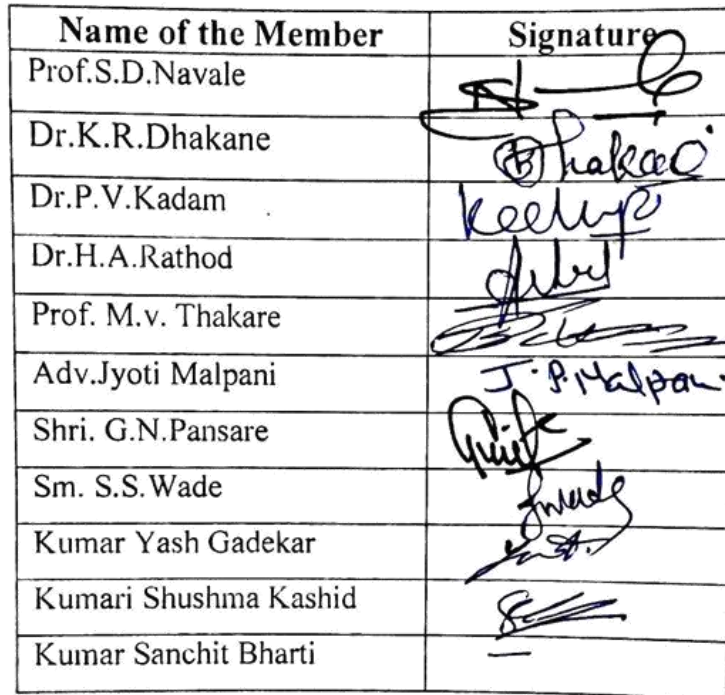 Name of the Member Signature
Prof.S.D.Navale
Dr.K.R.Dhakane
Dr.P.V.Kadam
Dr.H.A.Rathod
Prof. M.v. Thakare
Adv.Jyoti Malpani J.P.Malpani
Shri. G.N.Pansare
Sm. S.S.Wade
Kumar Yash Gadekar
Kumari Shushma Kashid
Kumar Sanchit Bharti —